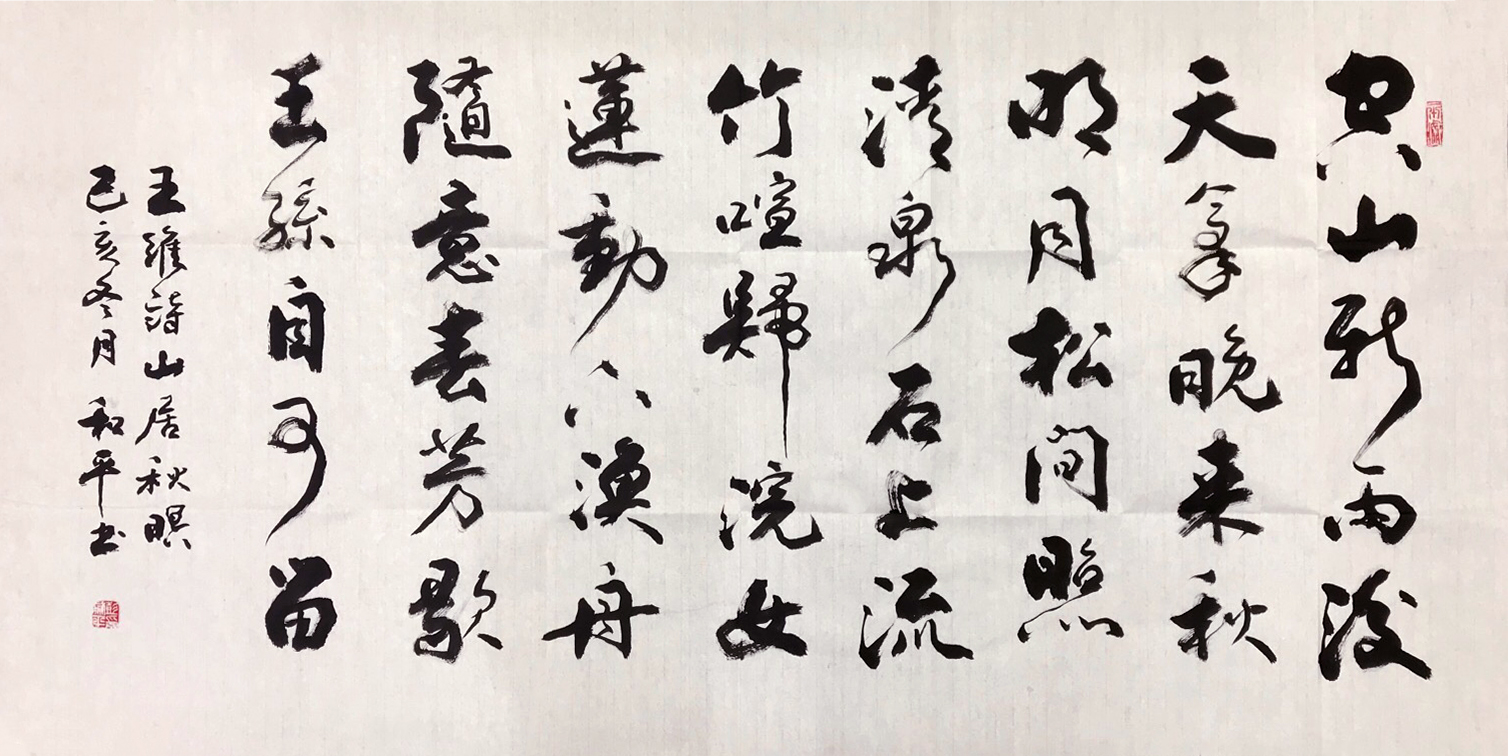 空山新雨後
天氣晚来秋
明月松間照
清泉石上流
竹喧歸浣女
蓮動下漁舟
隨意春芳歇
王孫自可留
王維詩山居秋暝
己亥冬月 和平书